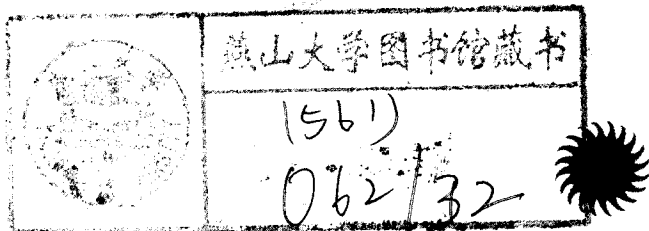 燕山大学图书馆藏书
(561)
062/32